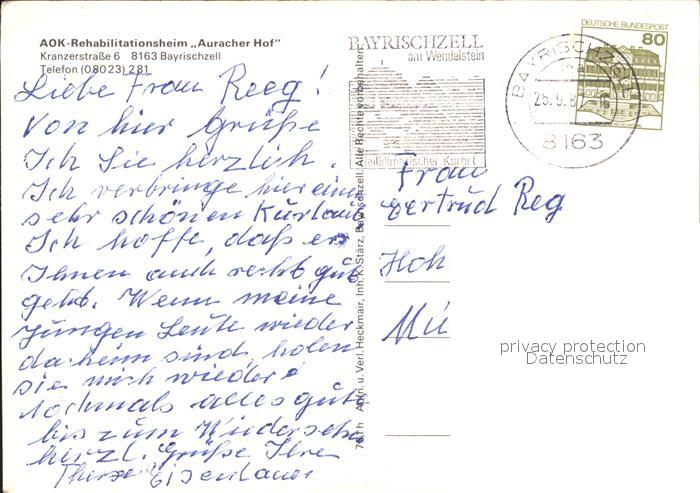 AOK-Rehabilitationsheim „Auracher Hof"
Kranzerstraße 6 8163 Bayrischzell
Telefon (0 80 23) 2 81
Liebe Frau Reeg!
Von hier Grüße
Ich Sie herzlich.
Ich verbringe hier einen
sehr schönen Kurlaub
Ich hoffe, daß es
Ihnen auch recht gut
geht. Wenn meine
jungen Leute wieder
daheim sind, holen
sie mich wieder.
Nochmals alles gute
bis zum Wiedersehn
herzl. Grüße Ihre
Therese Eisenlauer
76 Th Aufn. u. Verl. Heckmair, Inh. K. Stärz, Bayrischzell. Alle Rechte vorbehalten
BAYRISCHZELL
am Wendelstein
Heilklimatischer Kurort
BAYRISCHZELL
25.9.8
16
8163
DEUTSCHE BUNDESPOST
80
Frau
Gertrud Reg
Hoh
Mü
privacy protection
Datenschutz